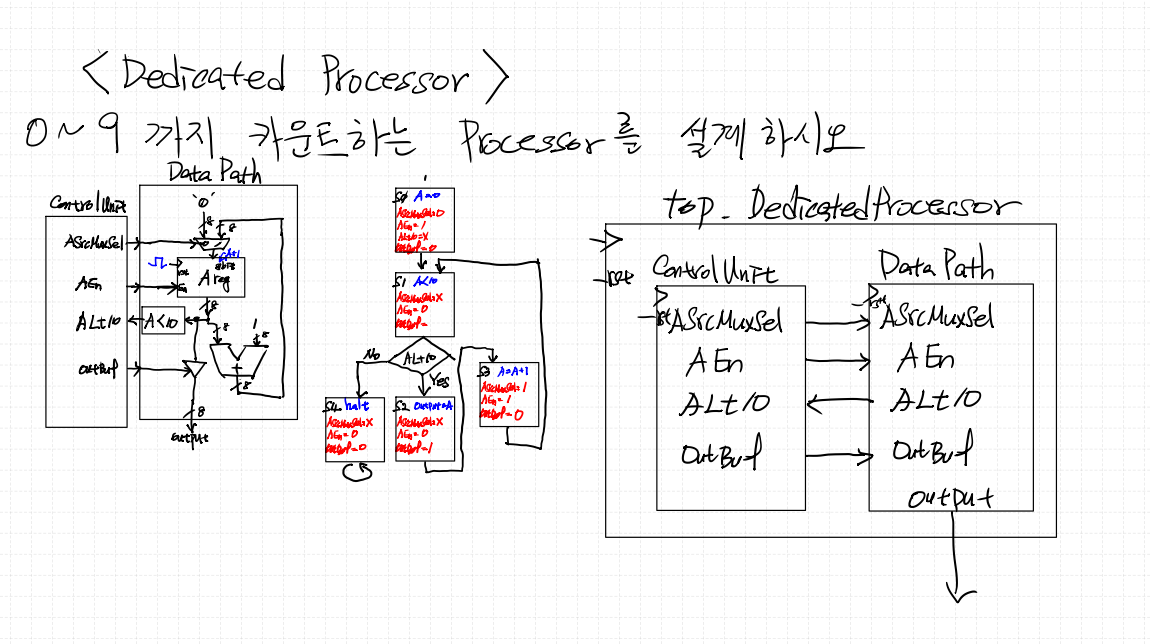 < Dedicated Processor >
0~9 까지 카운트하는 Processor를 설계하시오
Data Path
Control Unit
'0'
8
8
ASrcMuxSel
A+1
AEn
A reg
En
8
ALt10
A<10
8
1
8
OutBuf
+
8
8
output
S0 A=0
ASrcMuxSel=0
AEn=1
ALt10=X
OutBuf=0
S1 A<10
ASrcMuxSel=X
AEn=0
OutBuf=
ALt10
No
Yes
S3 A=A+1
ASrcMuxSel=1
AEn=1
OutBuf=0
S4 halt
ASrcMuxSel=X
AEn=0
OutBuf=0
S2 output=A
ASrcMuxSel=X
AEn=0
OutBuf=1
top_DedicatedProcessor
rst
Control Unit
rst
ASrcMuxSel
AEn
ALt10
OutBuf
Data Path
rst
ASrcMuxSel
AEn
ALt10
OutBuf
output